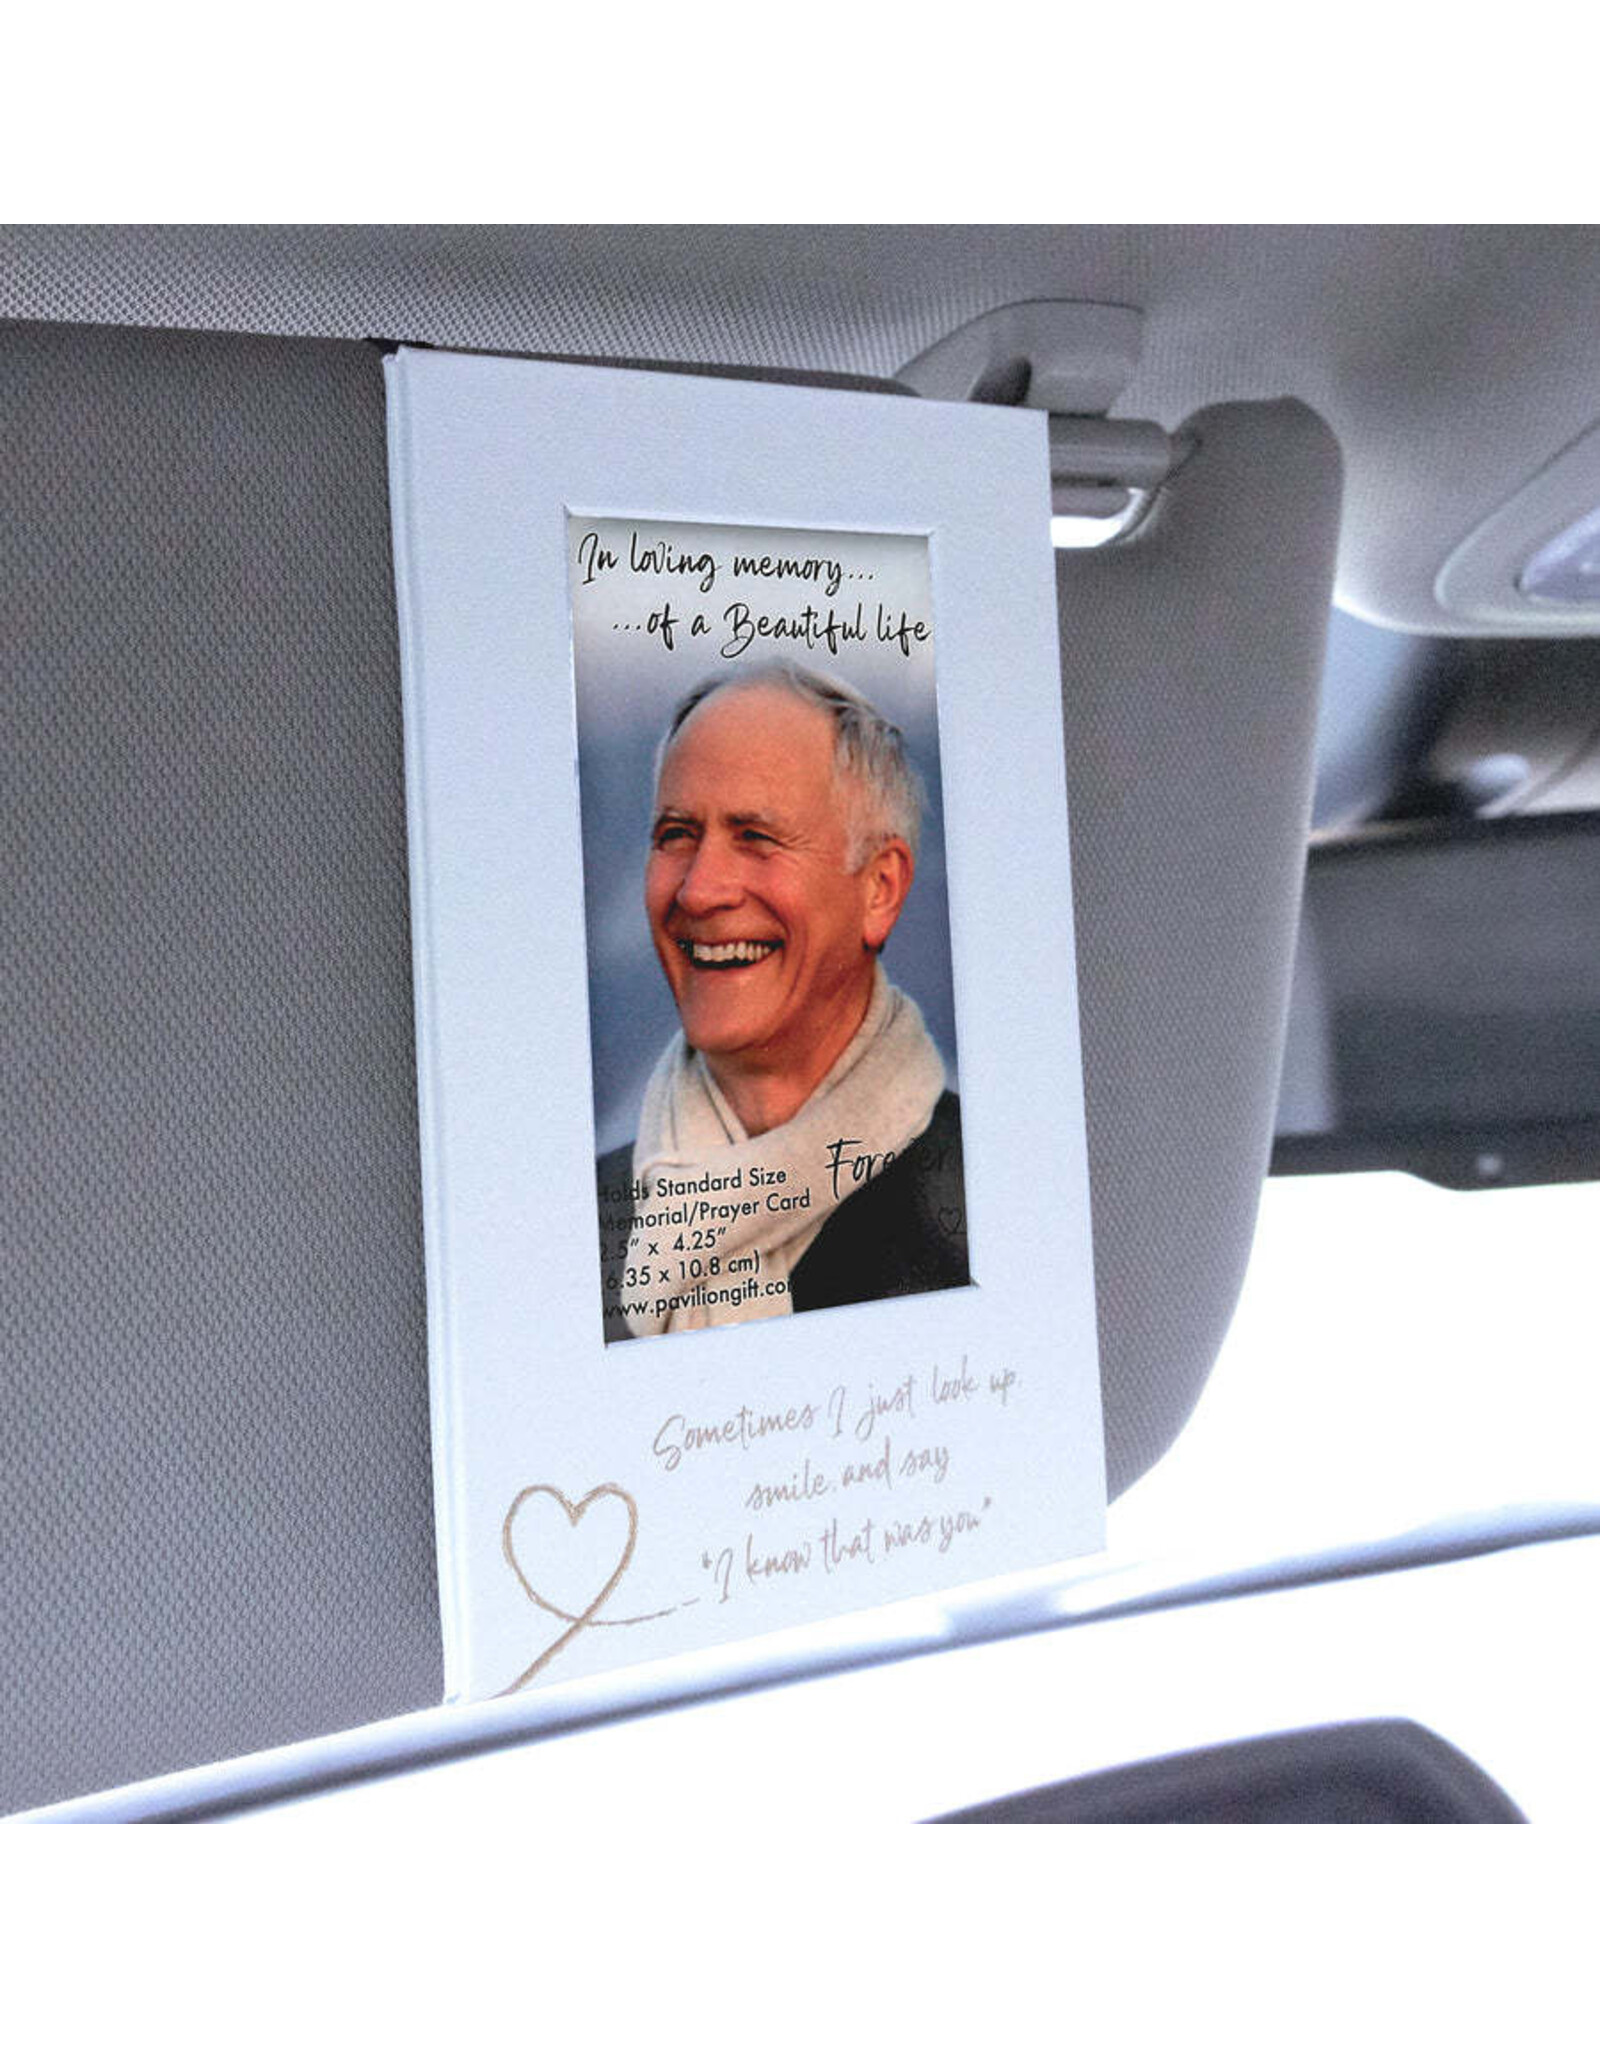 In loving memory...
...of a Beautiful life
Forever
Holds Standard Size
Memorial/Prayer Card
2.5" x 4.25"
6.35 x 10.8 cm)
www.paviliongift.co
Sometimes I just look up,
smile, and say
"I know that was you"